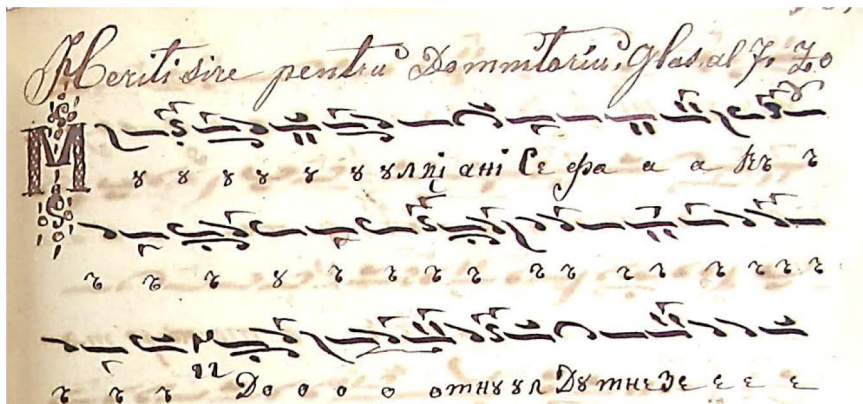 Heritisire pentru Domnitoriu, Glas. al 7. Zo
М ꙋ ꙋ ꙋ ꙋ ꙋ ꙋ ꙋл ці ані Се фа а а къ ъ
ъ ъ ъ ꙋ ъ ъ ъ ъ ъ ъ ъ ъ ъ ъ ъ ъ
ъ ъ ъ До о о о о мнꙋ ꙋ л Дꙋ мне Зе е е е